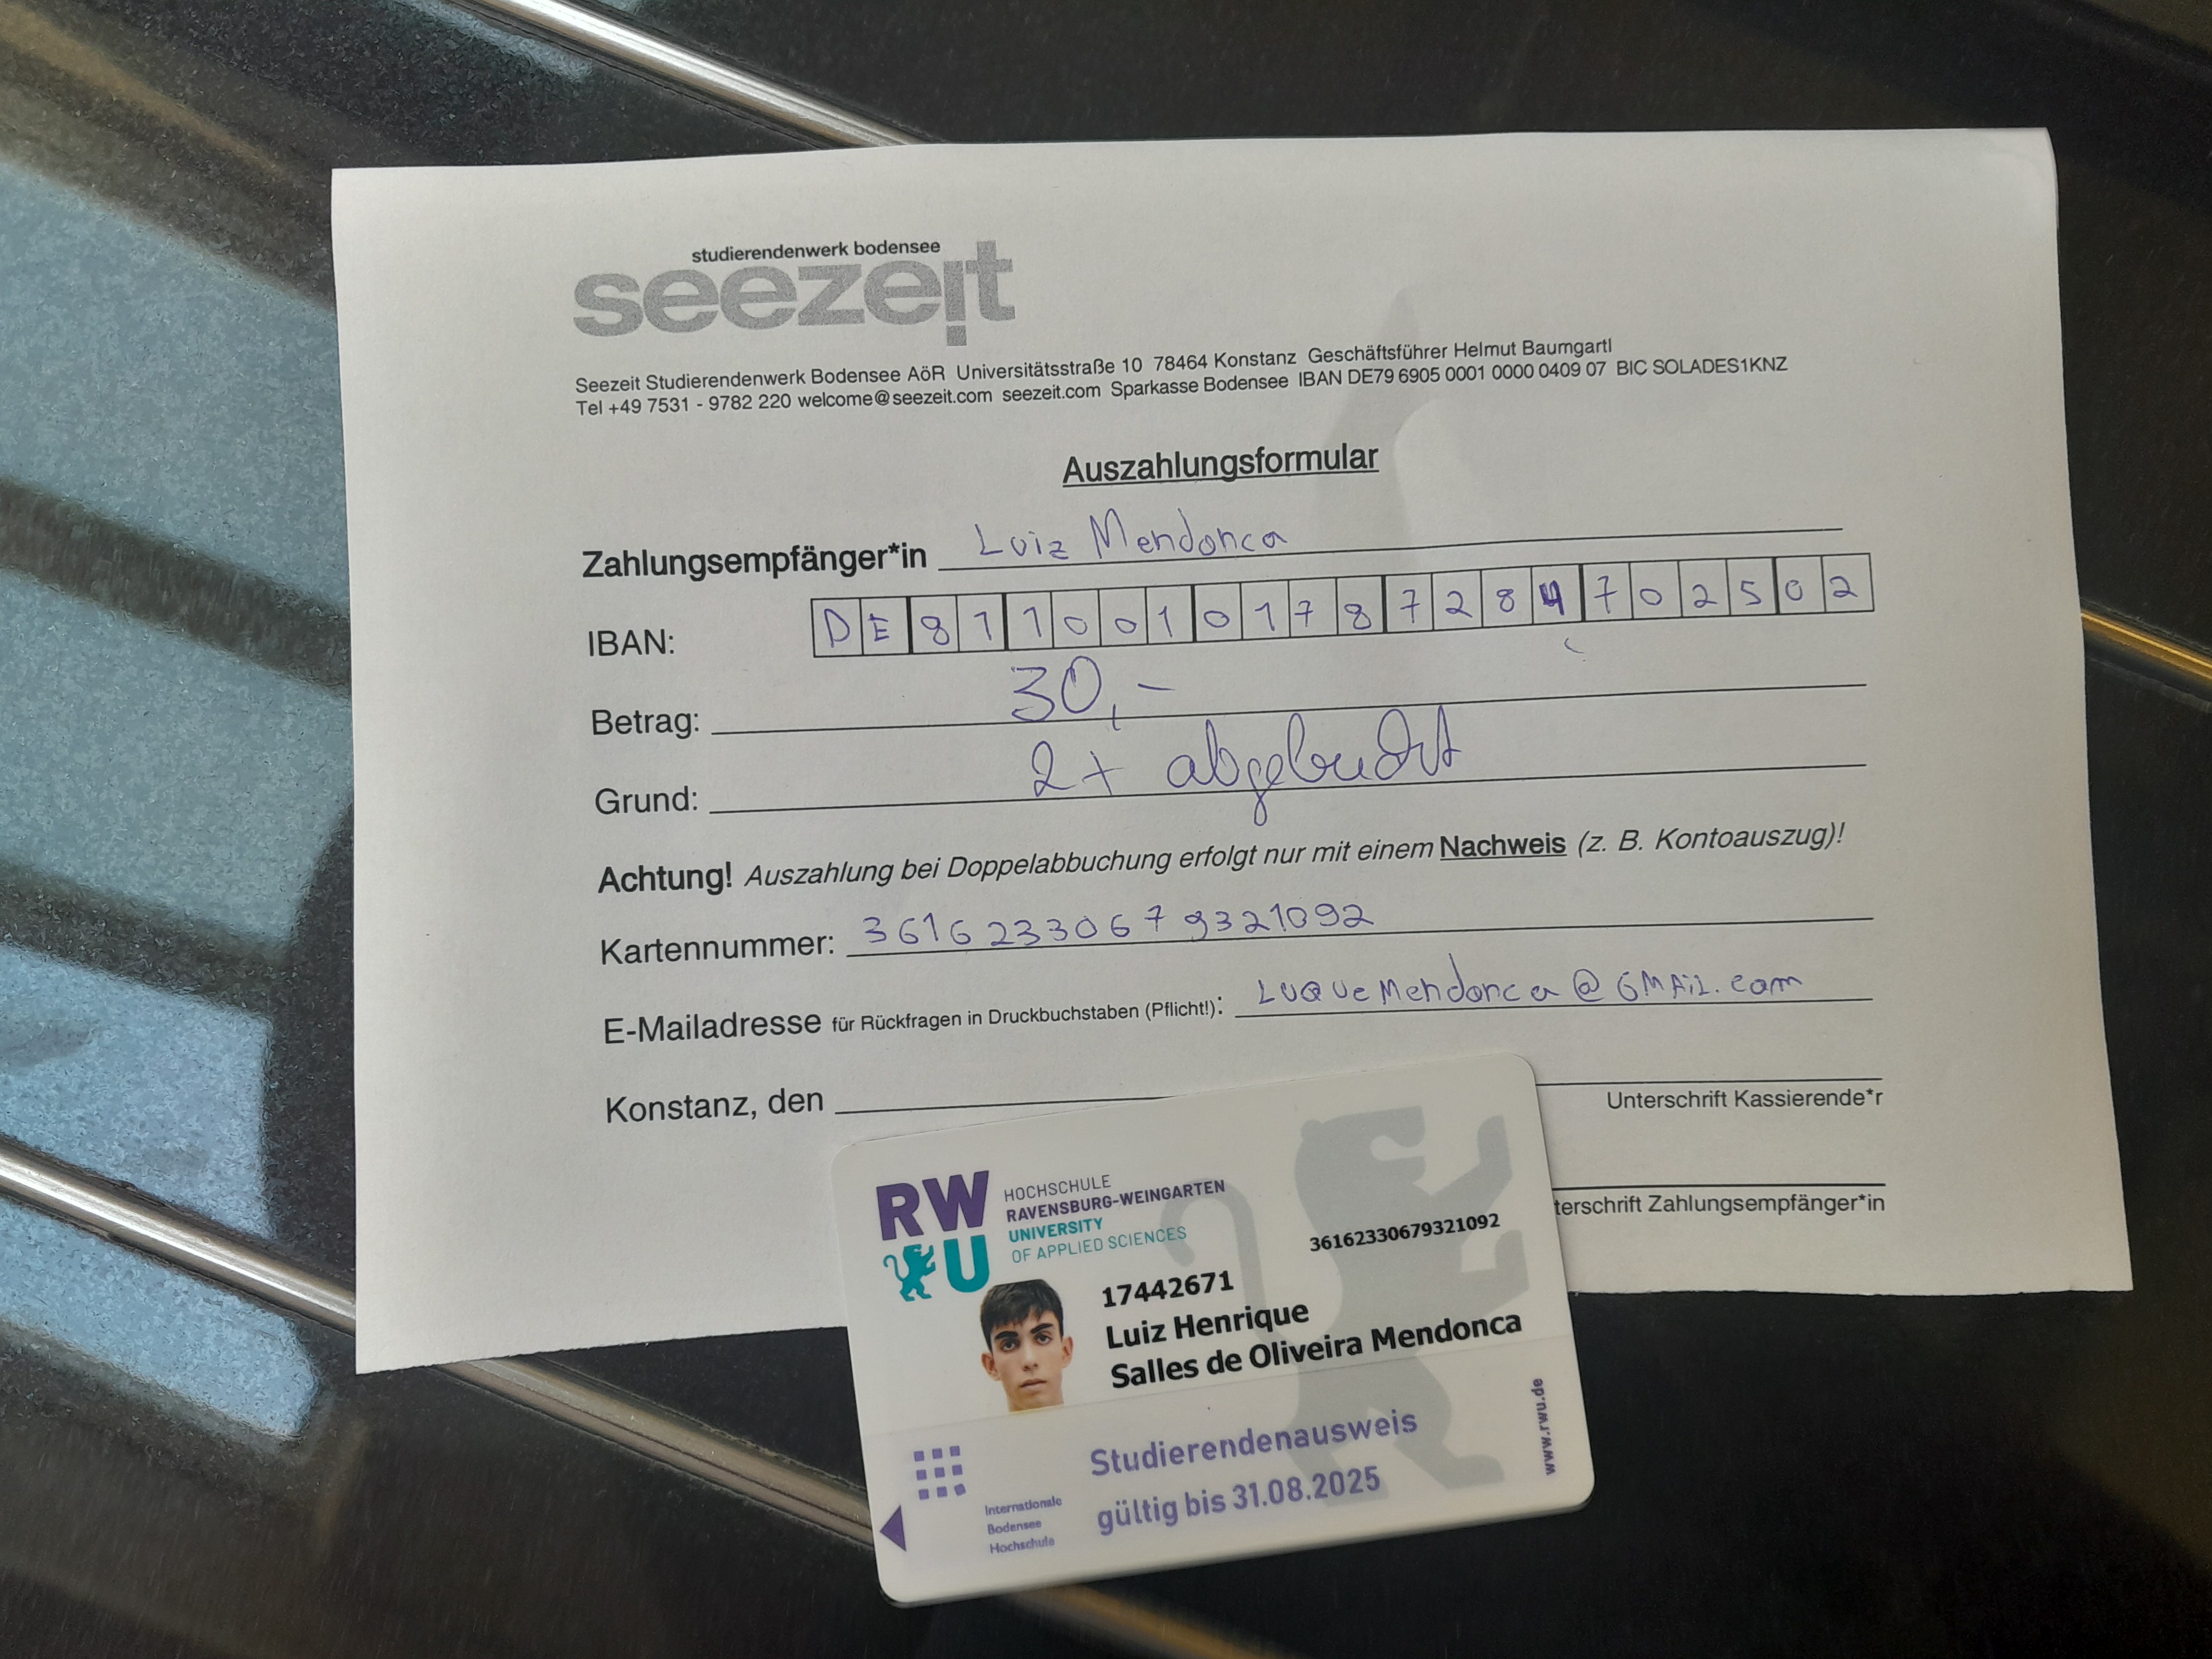 studierendenwerk bodensee
seezeit
Seezeit Studierendenwerk Bodensee AöR Universitätsstraße 10 78464 Konstanz Geschäftsführer Helmut Baumgartl
Tel +49 7531 - 9782 220 welcome@seezeit.com seezeit.com Sparkasse Bodensee IBAN DE79 6905 0001 0000 0409 07 BIC SOLADES1KNZ
Auszahlungsformular
Zahlungsempfänger*in Luiz Mendonca
IBAN: DE81100101787284702502
Betrag: 30,-
Grund: 2x abgebucht
Achtung! Auszahlung bei Doppelabbuchung erfolgt nur mit einem Nachweis (z. B. Kontoauszug)!
Kartennummer: 36162330679321092
E-Mailadresse für Rückfragen in Druckbuchstaben (Pflicht!): LUQUeMendonca@GMAil.com
Konstanz, den
Unterschrift Kassierende*r
terschrift Zahlungsempfänger*in
RWU
HOCHSCHULE
RAVENSBURG-WEINGARTEN
UNIVERSITY
OF APPLIED SCIENCES
36162330679321092
17442671
Luiz Henrique
Salles de Oliveira Mendonca
Studierendenausweis
gültig bis 31.08.2025
Internationale
Bodensee
Hochschule
www.rwu.de